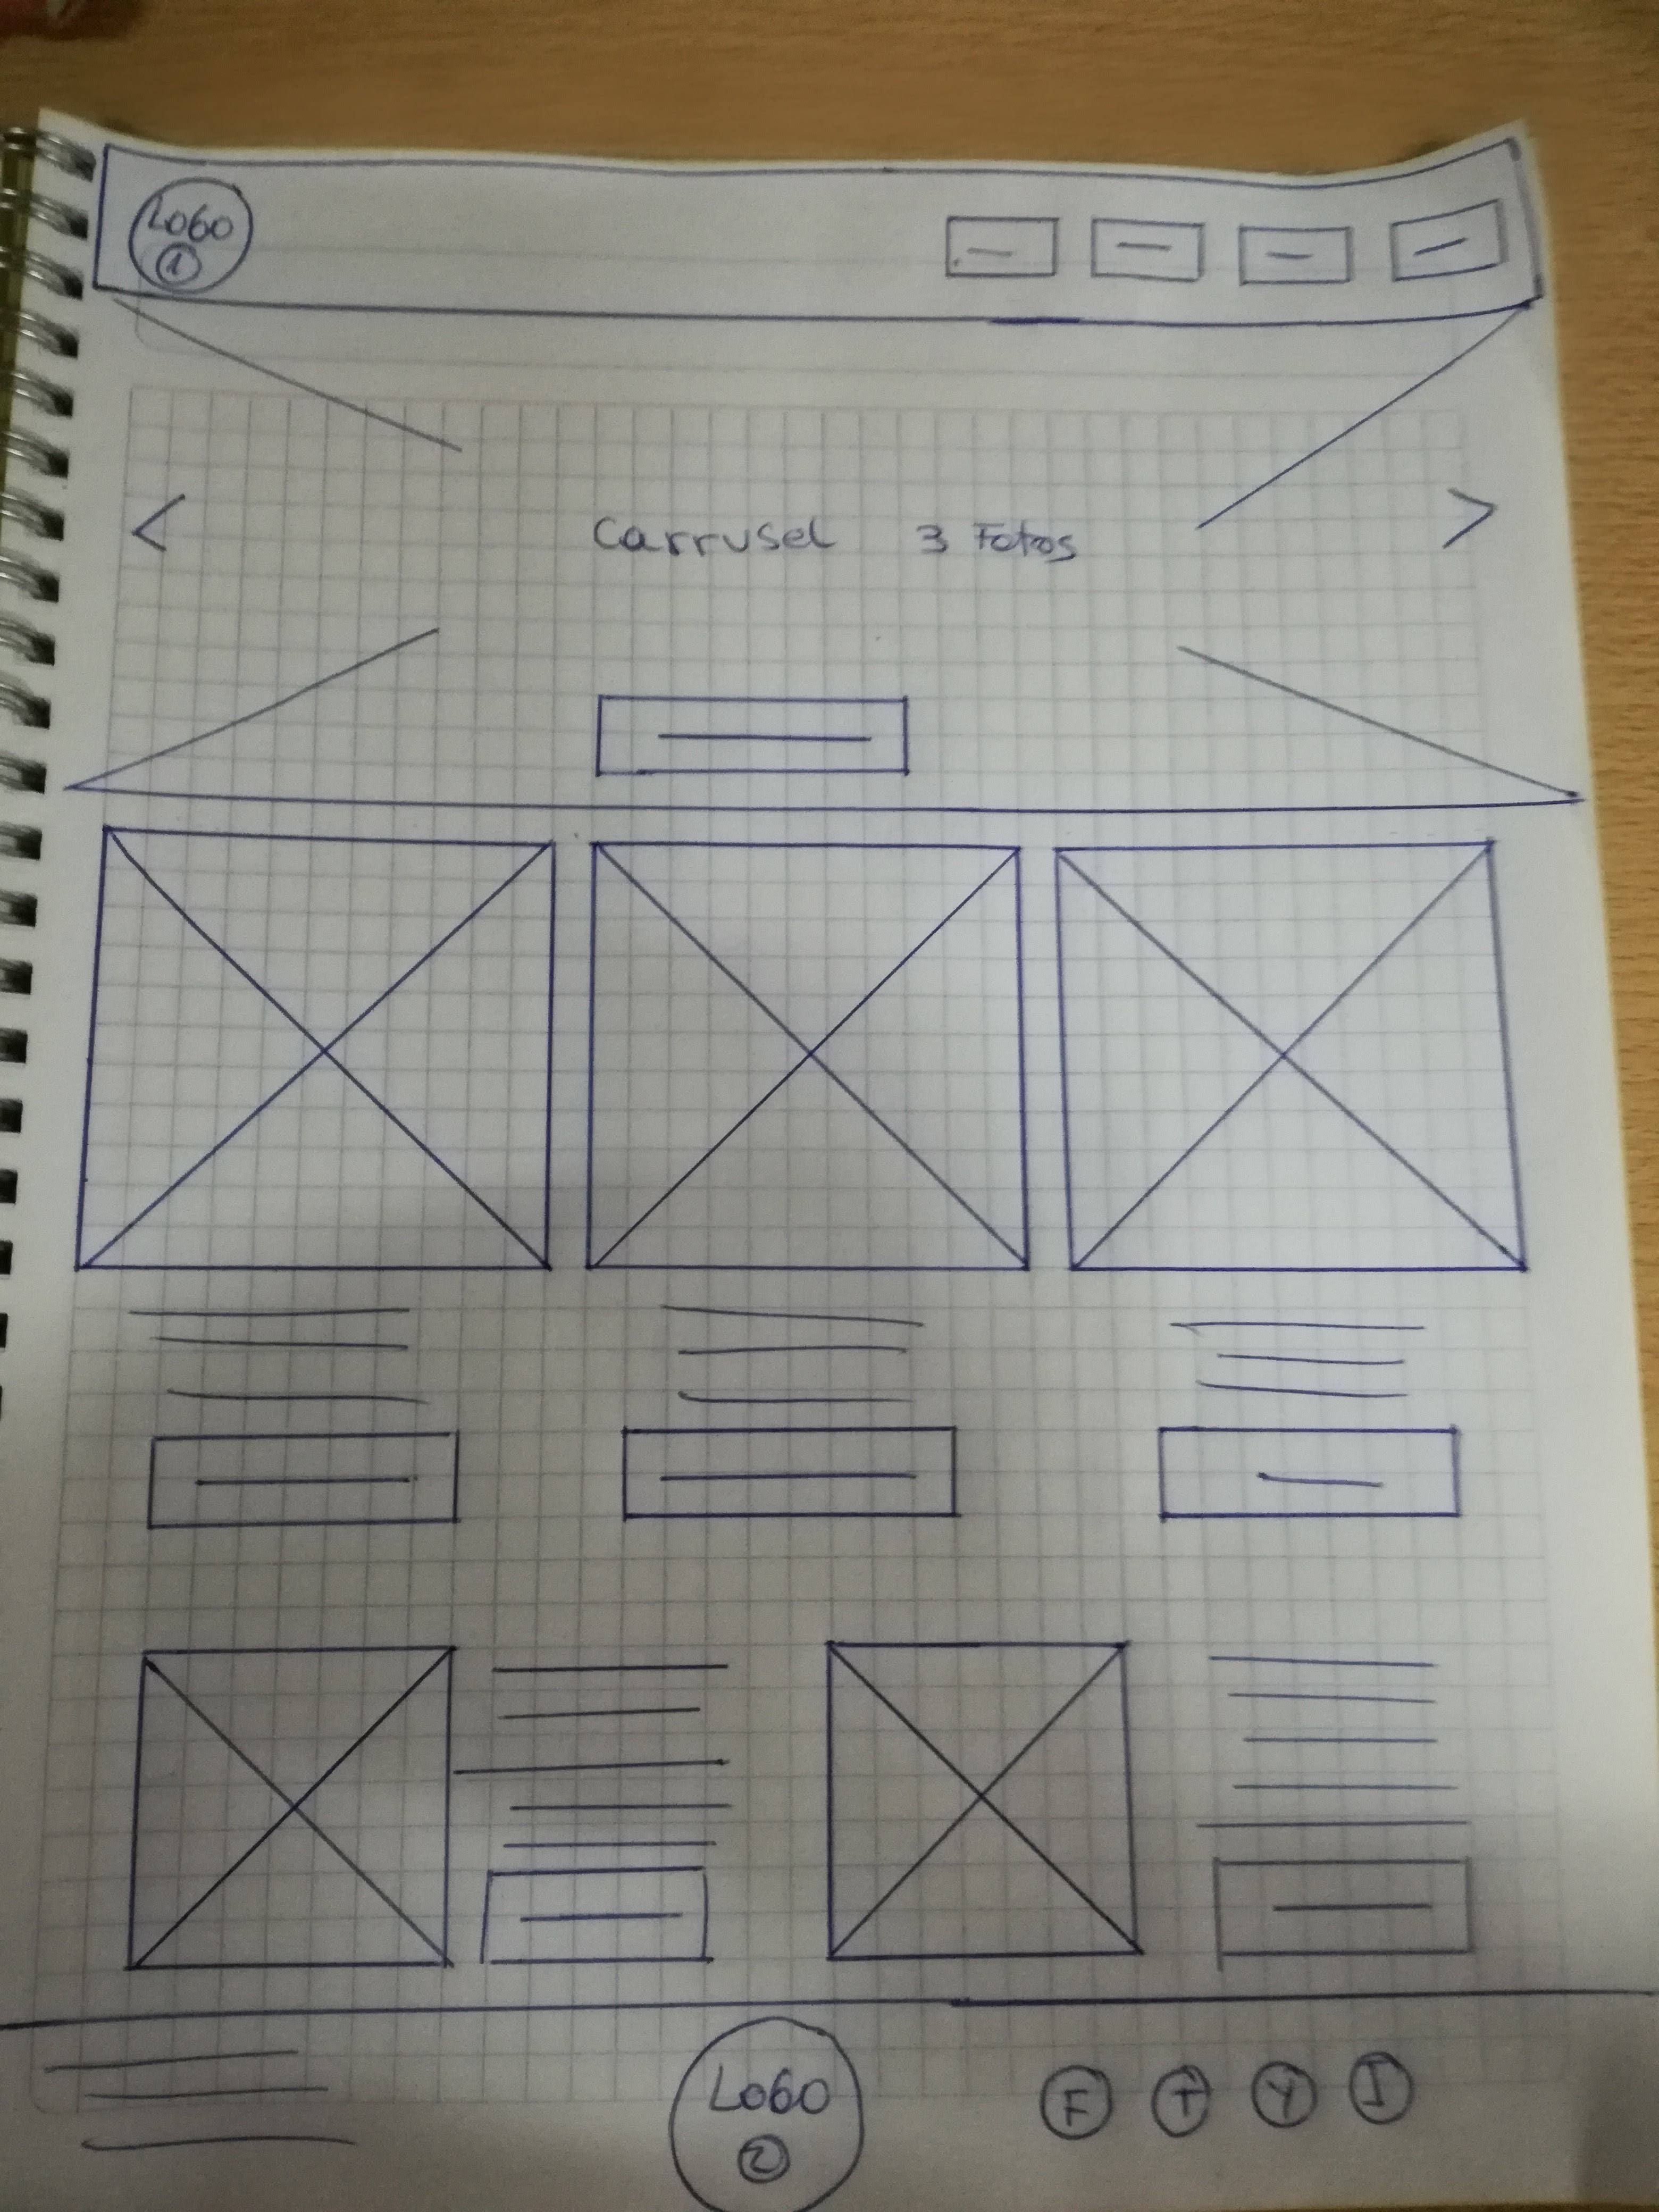 Logo
1
< Carrusel 3 Fotos >
Logo
2
F T Y I